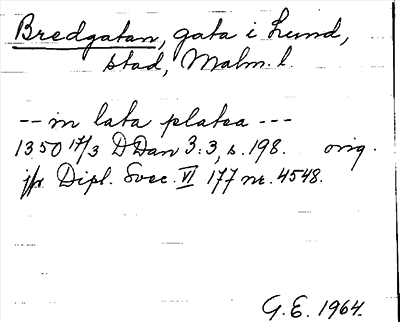 Bredgatan, gata i Lund,
stad, Malm. l.
-- in lata platea ---
1350 17/3 DDan 3:3, s. 198. orig.
jfr Dipl. Svec. VI 177 nr. 4548.
G.E. 1964.